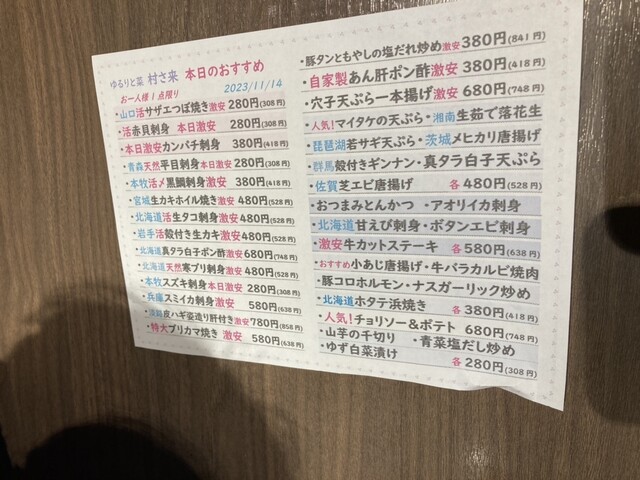 ゆるりと菜 村さ来 本日のおすすめ
お一人様1点限り 2023/11/14
・山口活サザエつぼ焼き激安280円(308円)
・活赤貝刺身 本日激安 280円(308円)
・本日激安カンパチ刺身 380円(418円)
・青森天然平目刺身本日激安280円(308円)
・本牧活〆黒鯛刺身激安 380円(418円)
・宮城生カキホイル焼き激安480円(528円)
・北海道活生タコ刺身激安480円(528円)
・岩手活殻付き生カキ激安480円(528円)
・北海道真タラ白子ポン酢激安680円(748円)
・北海道天然寒ブリ刺身激安480円(528円)
・本牧スズキ刺身本日激安280円(308円)
・兵庫スミイカ刺身激安 580円(638円)
・淡路皮ハギ姿造り肝付き激安780円(858円)
・特大ブリカマ焼き 激安 580円(638円)
・豚タンともやしの塩だれ炒め激安380円(841円)
・自家製あん肝ポン酢激安 380円(418円)
・穴子天ぷら一本揚げ激安 680円(748円)
・人気!マイタケの天ぷら・湘南生茹で落花生
・琵琶湖若サギ天ぷら・茨城メヒカリ唐揚げ
・群馬殻付きギンナン・真タラ白子天ぷら
・佐賀芝エビ唐揚げ 各480円(528円)
・おつまみとんかつ ・アオリイカ刺身
・北海道甘えび刺身・ボタンエビ刺身
・激安牛カットステーキ 各580円(638円)
・おすすめ小あじ唐揚げ・牛バラカルビ焼肉
・豚コロホルモン・ナスガーリック炒め
・北海道ホタテ浜焼き 各380円(418円)
・人気!チョリソー&ポテト 680円(748円)
・山芋の千切り ・青菜塩だし炒め
・ゆず白菜漬け 各280円(308円)